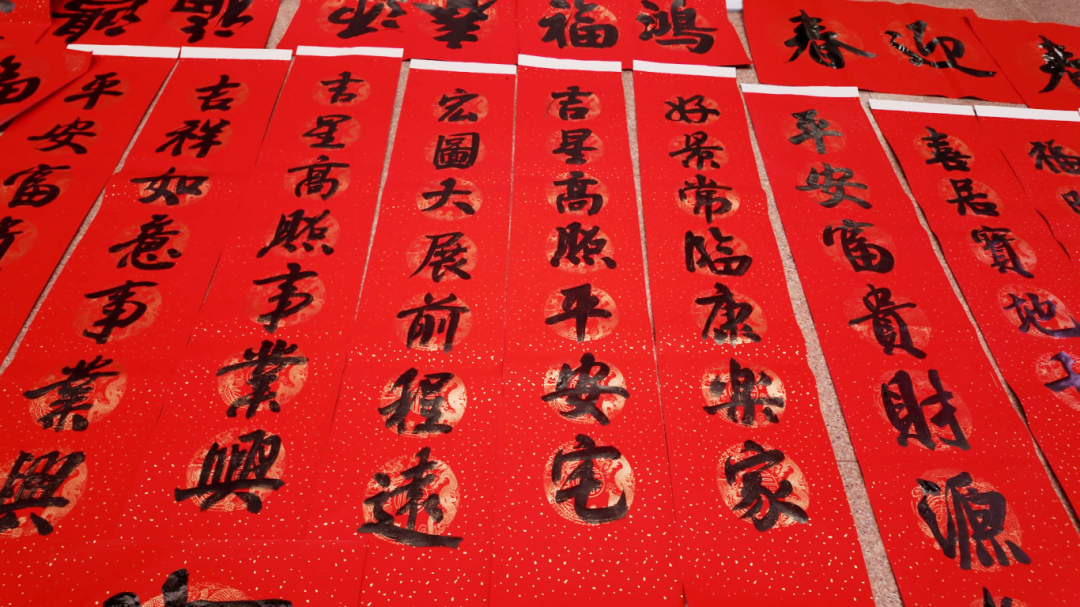 福鸿
春迎
平安富
吉祥如意事業興
吉星高照事業興
宏圖大展前程遠
吉星高照平安宅
好景常临康楽家
平安富貴財源
喜居寳地
福